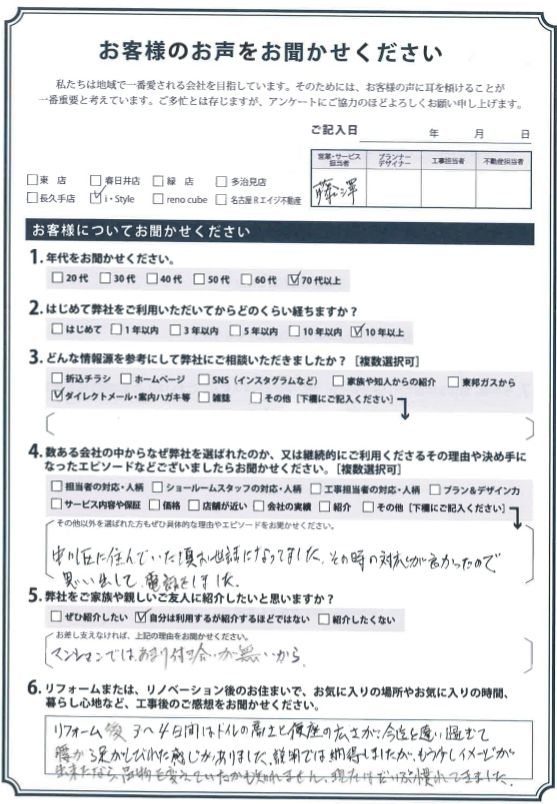 お客様のお声をお聞かせください
私たちは地域で一番愛される会社を目指しています。そのためには、お客様の声に耳を傾けることが
一番重要と考えています。ご多忙とは存じますが、アンケートにご協力のほどよろしくお願い申し上げます。
ご記入日 年 月 日
営業・サービス担当者 プランナーデザイナー 工事担当者 不動産担当者
藤澤
□東 店 □春日井店 □緑 店 □多治見店
□長久手店 ☑i・Style □reno cube □名古屋Rエイジ不動産
お客様についてお聞かせください
1. 年代をお聞かせください。
□20代 □30代 □40代 □50代 □60代 ☑70代以上
2. はじめて弊社をご利用いただいてからどのくらい経ちますか？
□はじめて □1年以内 □3年以内 □5年以内 □10年以内 ☑10年以上
3. どんな情報源を参考にして弊社にご相談いただきましたか？［複数選択可］
□折込チラシ □ホームページ □SNS（インスタグラムなど） □家族や知人からの紹介 □東邦ガスから
☑ダイレクトメール・案内ハガキ等 □雑誌 □その他［下欄にご記入ください］
4. 数ある会社の中からなぜ弊社を選ばれたのか、又は継続的にご利用くださるその理由や決め手に
なったエピソードなどございましたらお聞かせください。［複数選択可］
□担当者の対応・人柄 □ショールームスタッフの対応・人柄 □工事担当者の対応・人柄 □プラン&デザイン力
□サービス内容や保証 □価格 □店舗が近い □会社の実績 □紹介 □その他［下欄にご記入ください］
その他以外を選ばれた方もぜひ具体的な理由やエピソードをお聞かせください。
中川区に住んでいた頃お世話になってました。その時の対応が良かったので
思い出して電話をしました。
5. 弊社をご家族や親しいご友人に紹介したいと思いますか？
□ぜひ紹介したい ☑自分は利用するが紹介するほどではない □紹介したくない
お差し支えなければ、上記の理由をお聞かせください。
マンションではあまり付き合いが無いから
6. リフォームまたは、リノベーション後のお住まいで、お気に入りの場所やお気に入りの時間、
暮らし心地など、工事後のご感想をお聞かせください。
リフォーム後 3〜4日間はトイレの高さと便座の広さが、今迄と違い過ぎて
腰から足がしびれた感じがありました。説明では納得しましたが、もう少しイメージが
出来たなら品物を変えていたかも知れません。現在はだいぶ慣れてきました。